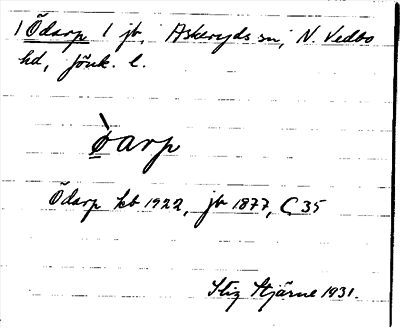 1 Ödarp 1 jb, Askeryds sn, N. Vedbo
hd, Jönk. l.
ò̲arp
Ödarp kb 1922, jb 1877, C 35
Stig Stjärne 1931.